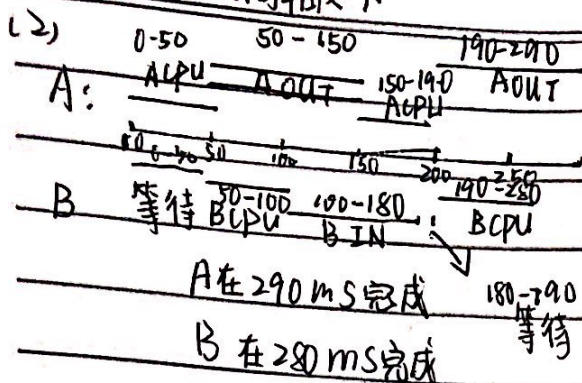 (2)
0-50 50-150 190-290
A: ACPU AOUT 150-190 AOUT
ACPU
50 100 150 200 250
B 等待 50-100 100-180 190-280
BCPU B IN BCPU
A在290mS完成 180-190
等待
B在280mS完成